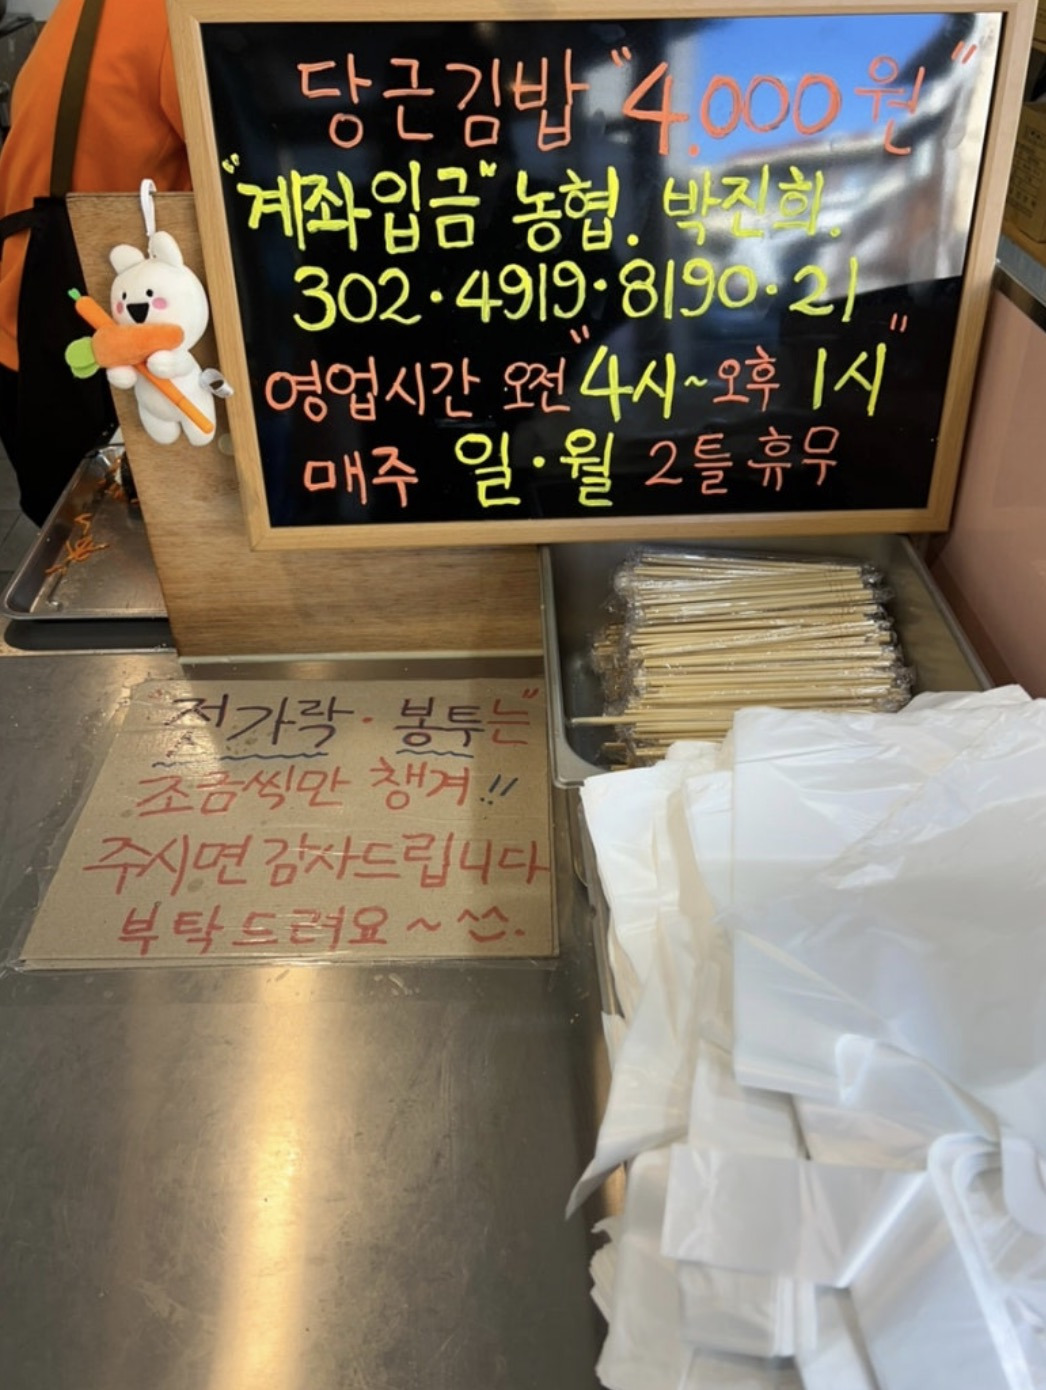 당근김밥 "4.000원"
"계좌입금" 농협. 박진희.
302·4919·8190·21
영업시간 오전 "4시~오후 1시"
매주 일·월 2틀 휴무
"젓가락·봉투는"
조금씩만 챙겨!!
주시면 감사드립니다
부탁드려요~^^.